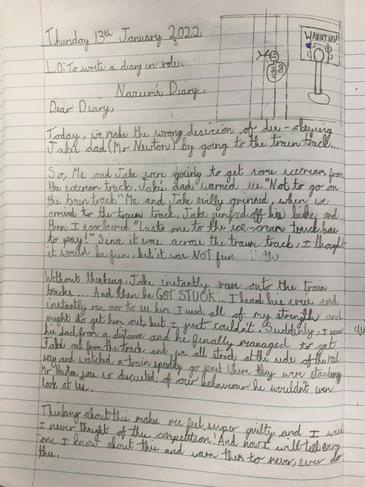 Thursday 13th January 2022
WARNING!
L.O: To write a diary in role.
Narum's Diary
Dear Diary,
Today, we made the wrong desicion of dis-obeying
Jake's dad (Mr Newton) by going to the train track...
So, Me and Jake were going to get some icecream from
the icecream truck. Jake's dad warned us "Not to go on
the train track" Me and Jake evilly grinned, when we
arrived to the train track, Jake jumped off his bike, and
then I exclaimed "Last one to the ice-cream truck has
to pay!" Since it was across the train track, I thought
it would be fun, but it was NOT fun...
Without thinking, Jake instantly ran onto the train
tracks... And then he GOT STUCK... I heard his cries and
instantly ran over to him. I used all of my strength and
might to get him out, but I just couldn't. Suddenly, I saw
his dad from a distance and he finally managed to get
Jake out from the track and we all stood at the side of the
and watched a train speedily go past where they were standing
Mr Newton was so discusted of our behaviour he wouldn't even
look at us...
Thinking about this make me feel super guilty and I wish
I never thought of the competition! And now I will tell every
one I know about this and warn them to never, ever do
this.